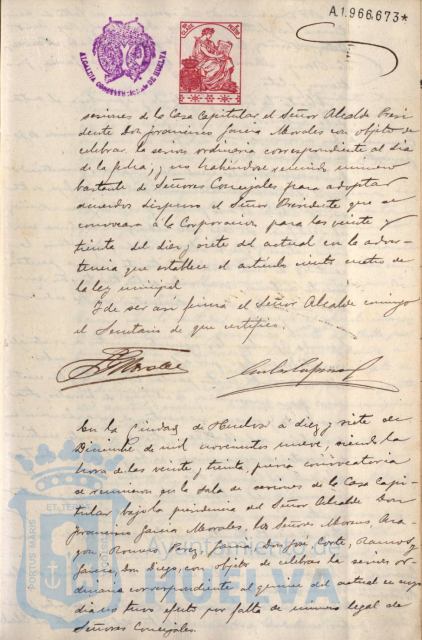 A.1.966.673*
ALCALDIA CONSTITUCIONAL DE HUELVA
sesiones de la Casa Capitular el Señor Alcalde Presi
dente Don Francisco García Morales con objeto de
celebrar la sesion ordinaria correspondiente al dia
de la fecha, y no habiéndose reunido número
bastante de Señores Concejales para adoptar
acuerdos dispuso el Señor Presidente que se
convocara á la Corporacion para las veinte y
treinta del diez y siete del actual con la adver-
tencia que establece el artículo ciento cuatro de
la ley municipal
Y de ser asi firma el Señor Alcalde conmigo
el Secretario de que certifico.
F. G. Morales
En la Ciudad de Huelva á diez y siete de
Diciembre de mil novecientos nueve, siendo la
hora de las veinte y treinta, previa convocatoria
se reunieron en la Sala de sesiones de la Casa Capi-
tular bajo la presidencia del Señor Alcalde Don
Francisco García Morales, los Señores Moreno, Ara-
gon, Romero, Perez, García Don José, Corte, Ramos y
García Don Diego, con objeto de celebrar la sesion or-
dinaria correspondiente al quince del actual en cuyo
dia no tuvo efecto por falta de número legal de
Señores Concejales.
PORTUS MARIS
ET TERRAE
Ayuntamiento de
HUELVA